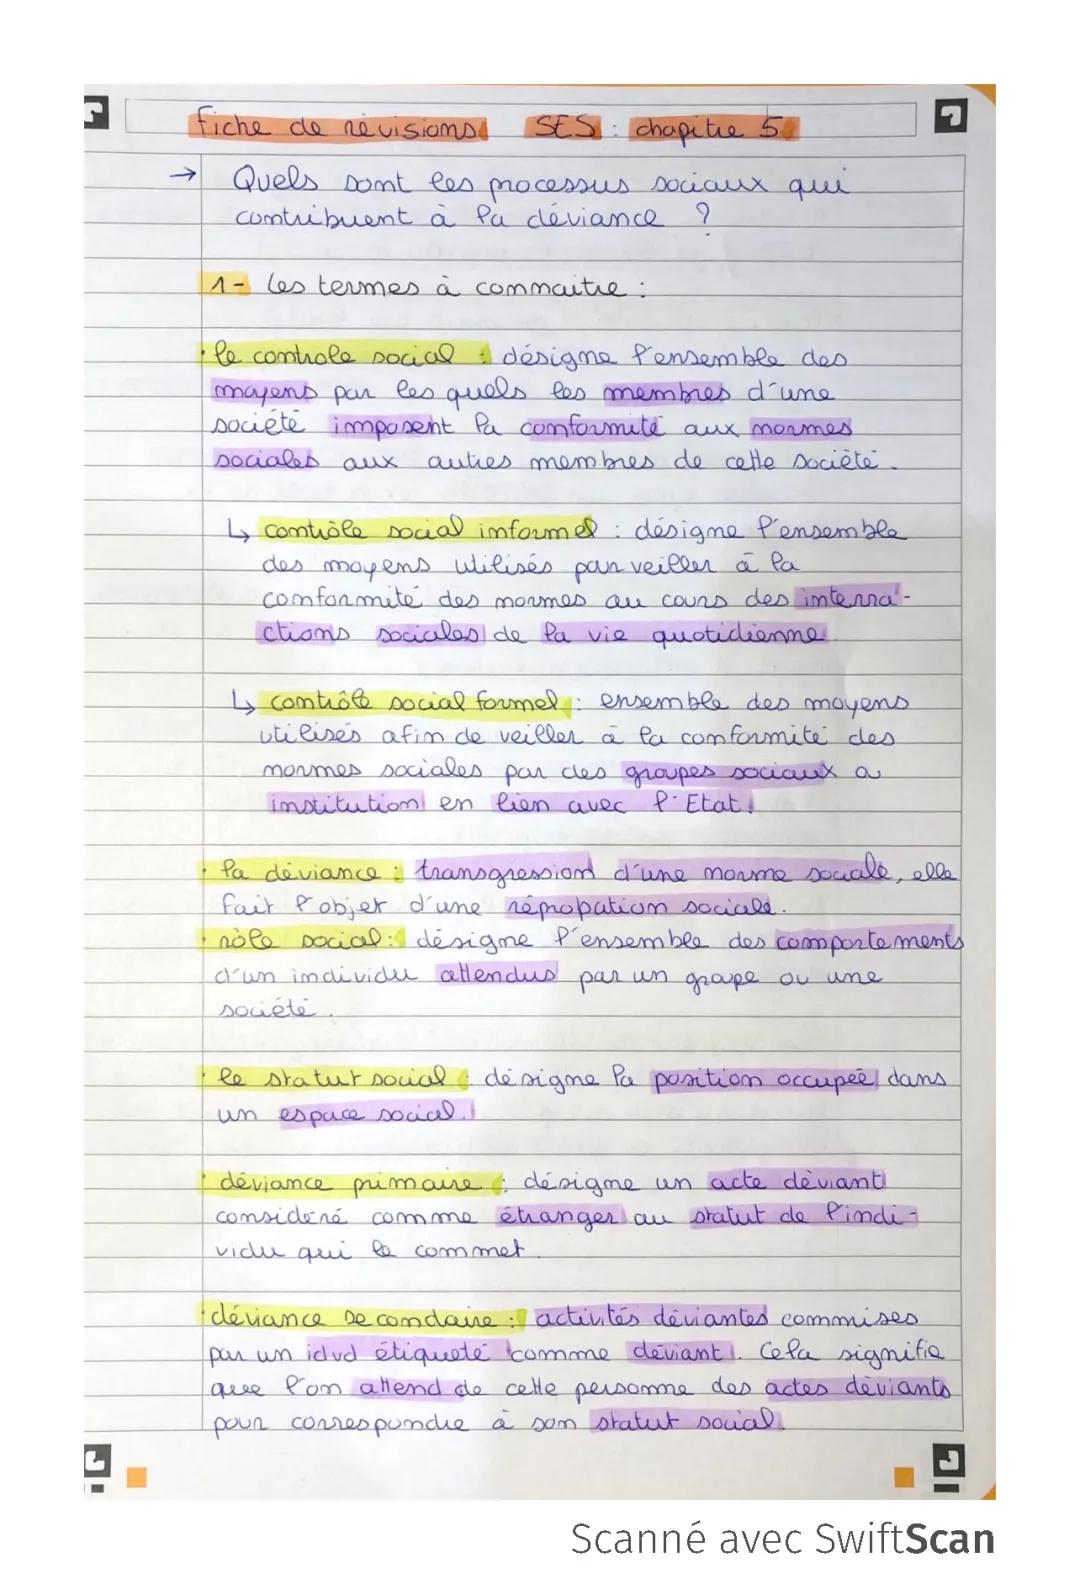 fiche de révisions SES : chapitre 5
→ Quels sont les processus sociaux qui
contribuent à la déviance ?
1- les termes à connaitre :
· le controle social : désigne l'ensemble des
moyens par les quels les membres d'une
société imposent la conformité aux normes
sociales aux autres membres de cette société.
↳ contrôle social informel : désigne l'ensemble
des moyens utilisés par veiller à la
conformité des normes au cours des interra-
ctions sociales de la vie quotidienne
↳ contrôle social formel : ensemble des moyens
utilisés afin de veiller à la conformité des
normes sociales par des groupes sociaux a
institution en lien avec l'Etat.
· la déviance : transgression d'une norme sociale, elle
fait l'objet d'une répropation sociale.
· rôle social : désigne l'ensemble des comportements
d'un individu attendus par un groupe ou une
société.
· le statut social : désigne la position occupée dans
un espace social.
· déviance primaire : désigne un acte déviant
considéré comme étranger au statut de l'indi-
vidu qui le commet.
· déviance secondaire : activités déviantes commises
par un idvd étiqueté comme déviant. Cela signifie
que l'on attend de cette personne des actes déviants
pour correspondre à son statut social.
Scanné avec SwiftScan